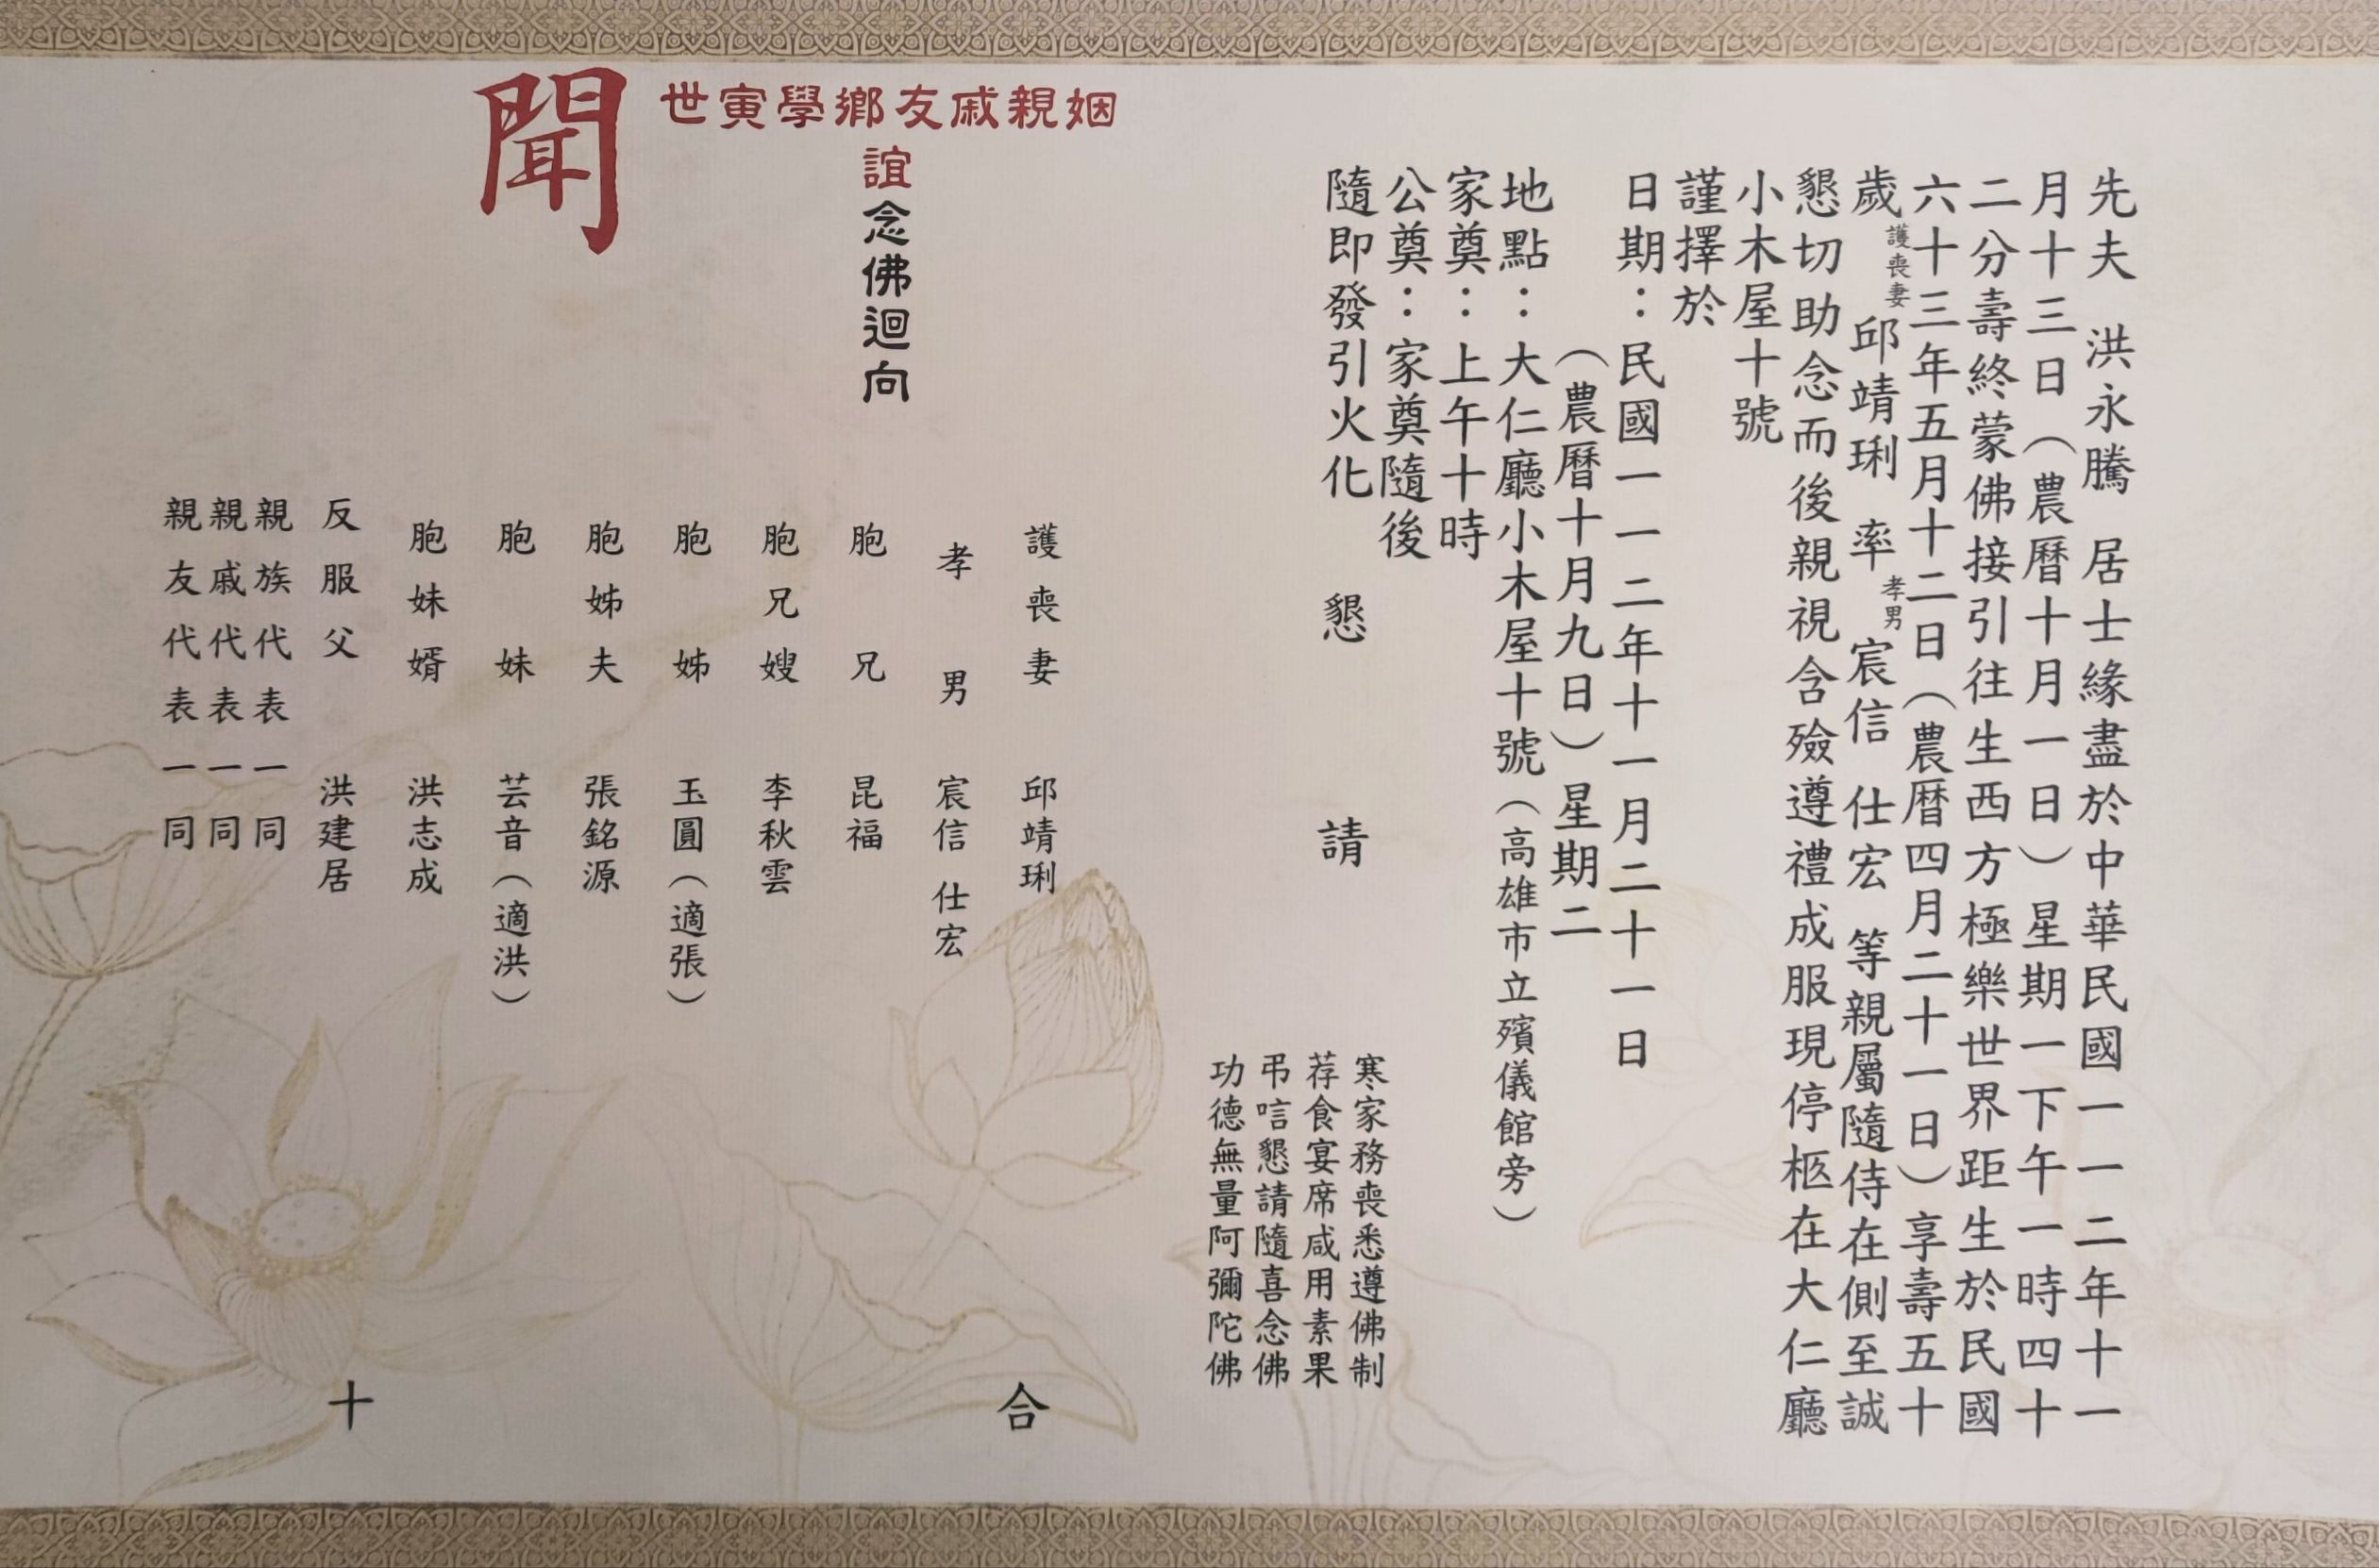 先夫 洪永騰 居士緣盡於中華民國一一二年十一
月十三日（農曆十月一日）星期一下午一時四十
二分壽終蒙佛接引往生西方極樂世界距生於民國
六十三年五月十二日（農曆四月二十一日）享壽五十
歲護喪妻邱靖琍 率孝男宸信 仕宏 等親屬隨侍在側至誠
懇切助念而後親視含殮遵禮成服現停柩在大仁廳
小木屋十號
謹擇於
日期：民國一一二年十一月二十一日
（農曆十月九日）星期二
地點：大仁廳小木屋十號（高雄市立殯儀館旁）
家奠：上午十時
公奠：家奠隨後
隨即發引火化
懇請
寒家務喪悉遵佛制
荐食宴席咸用素果
弔唁懇請隨喜念佛
功德無量阿彌陀佛
姻親戚友鄉學寅世
誼念佛迴向
聞
護喪妻 邱靖琍
孝男 宸信 仕宏
胞兄 昆福
胞兄嫂 李秋雲
胞姊 玉圓（適張）
胞姊夫 張銘源
胞妹 芸音（適洪）
胞妹婿 洪志成
反服父 洪建居
親族代表一同
親戚代表一同
親友代表一同
合十